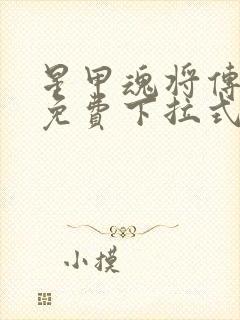 星甲魂将傳
免費下拉式
小摸